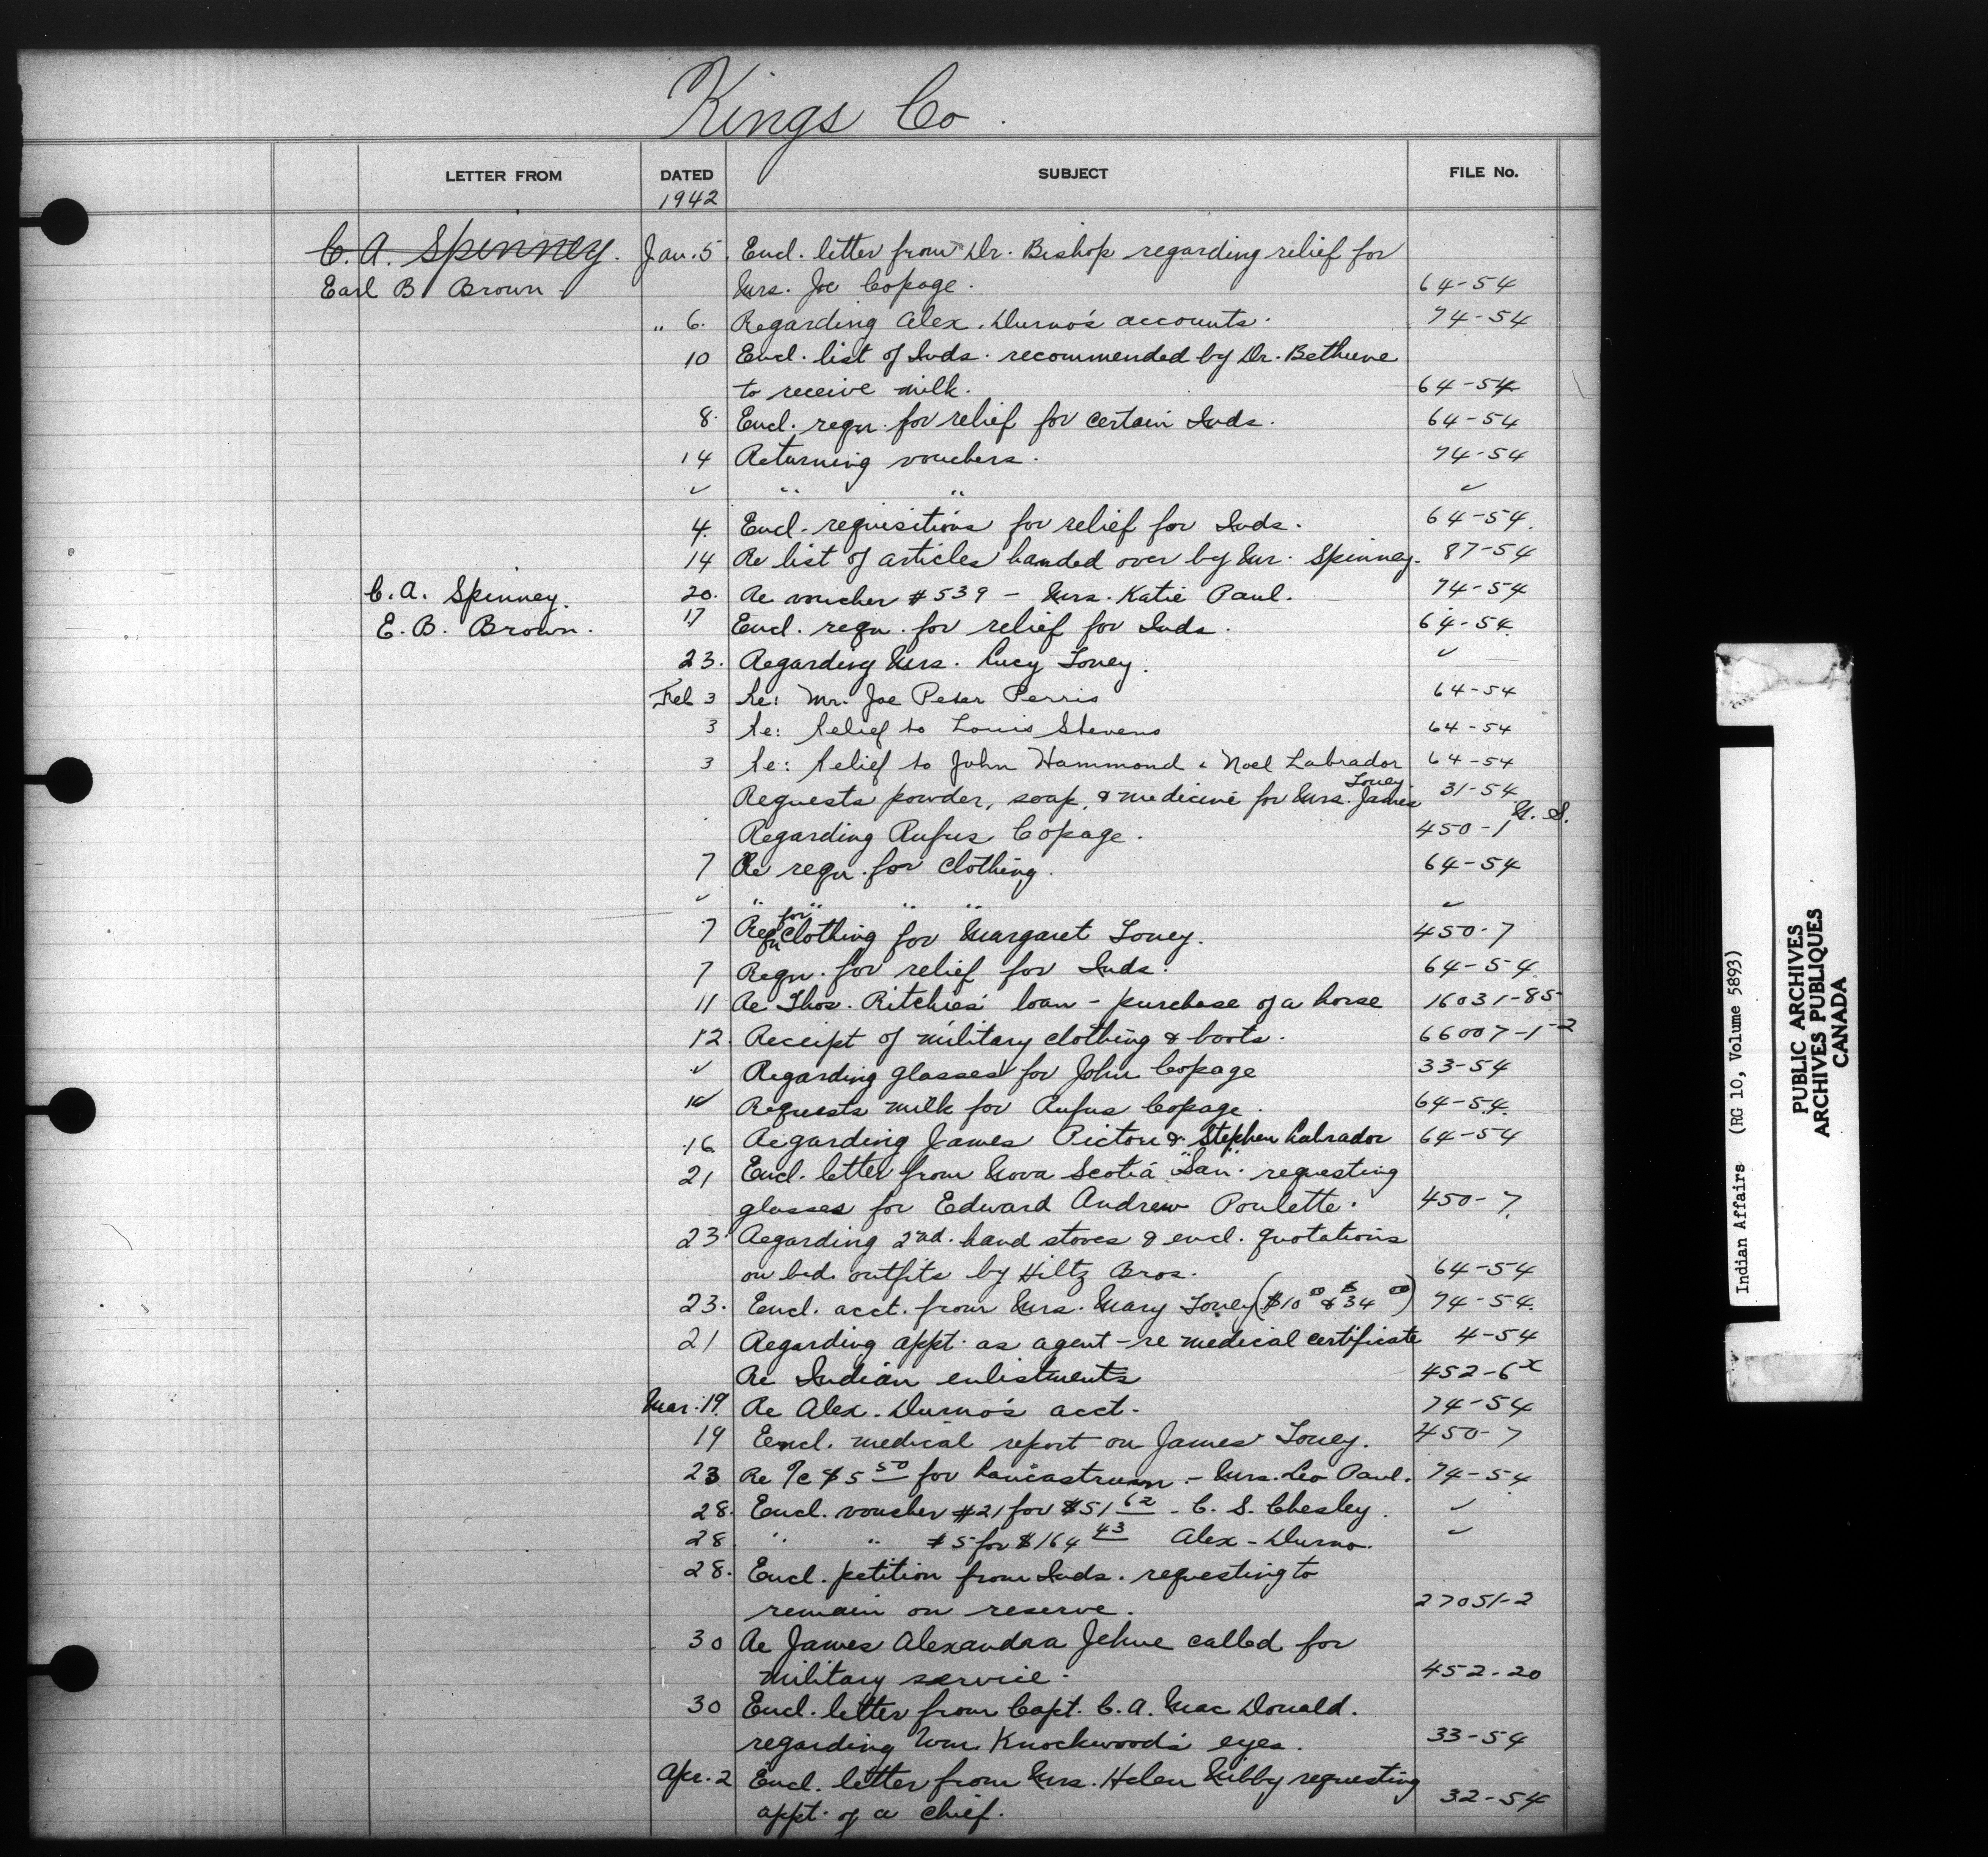 Kings Co.
LETTER FROM DATED SUBJECT FILE No.
1942
C. A. Spinney. Jan. 5. Encl. letter from Dr. Bishop regarding relief for
Earl B. Brown. Mrs. Joe Copage. 64-54
" 6. Regarding Alex. Durno's accounts. 74-54
10 Encl. list of Inds. recommended by Dr. Bethune
to receive milk. 64-54
8. Encl. reqn. for relief for certain Inds. 64-54
14 Returning vouchers. 74-54
✓ " " ✓
4. Encl. requisitions for relief for Inds. 64-54.
14 Re list of articles handed over by Mr. Spinney. 87-54
C. A. Spinney. 20. Re voucher #539 - Mrs. Katie Paul. 74-54
E. B. Brown. 17 Encl. reqn. for relief for Inds. 64-54.
23. Regarding Mrs. Lucy Toney. ✓
Feb 3 Re: Mr. Joe Peter Perris 64-54
3 Re: Relief to Louis Stevens 64-54
3 Re: Relief to John Hammond & Noel Labrador 64-54
Requests powder, soap, & medicine for Mrs. James Toney 31-54
Regarding Rufus Copage. 450-1 N.S.
7 Re reqn. for clothing. 64-54
✓ " " " " ✓
7 Reqn for clothing for Margaret Toney. 450-7
7 Reqn. for relief for Inds. 64-54.
11 Re Thos. Ritchies' loan - purchase of a horse 16031-85
12. Receipt of military clothing & boots. 66007-1-2
✓ Regarding glasses for John Copage 33-54
Requests milk for Rufus Copage. 64-54.
16. Regarding James Pictou & Stephen Labrador 64-54
21 Encl. letter from Nova Scotia "San". requesting
glasses for Edward Andrew Poulette. 450-7.
23 Regarding 2nd. hand stoves & encl. quotations
on bed outfits by Hiltz Bros. 64-54
23. Encl. acct. from Mrs. Mary Toney ($10 00 & $34 00) 74-54.
21 Regarding appt. as agent - re medical certificate 4-54
Re Indian enlistments 452-6 x
Mar. 19. Re Alex. Durno's acct. 74-54
19 Encl. medical report on James Toney. 450-7
23 Re %c $5 50 for - Mrs. Leo Paul. 74-54
28. Encl. voucher #21 for $51 62 - C. S. Chesley. ✓
28. " " #5 for $164 43 Alex - Durno. ✓
28. Encl. petition from Inds. requesting to
remain on reserve. 27051-2
30 Re James Alexandra Jehue called for
military service. 452-20
30 Encl. letter from Capt. C. A. MacDonald.
regarding Wm. Knockwood's eyes. 33-54
Apr. 2 Encl. letter from Mrs. Helen Nibby requesting
appt. of a chief. 32-54
Indian Affairs (RG 10, Volume 5893)
PUBLIC ARCHIVES
ARCHIVES PUBLIQUES
CANADA